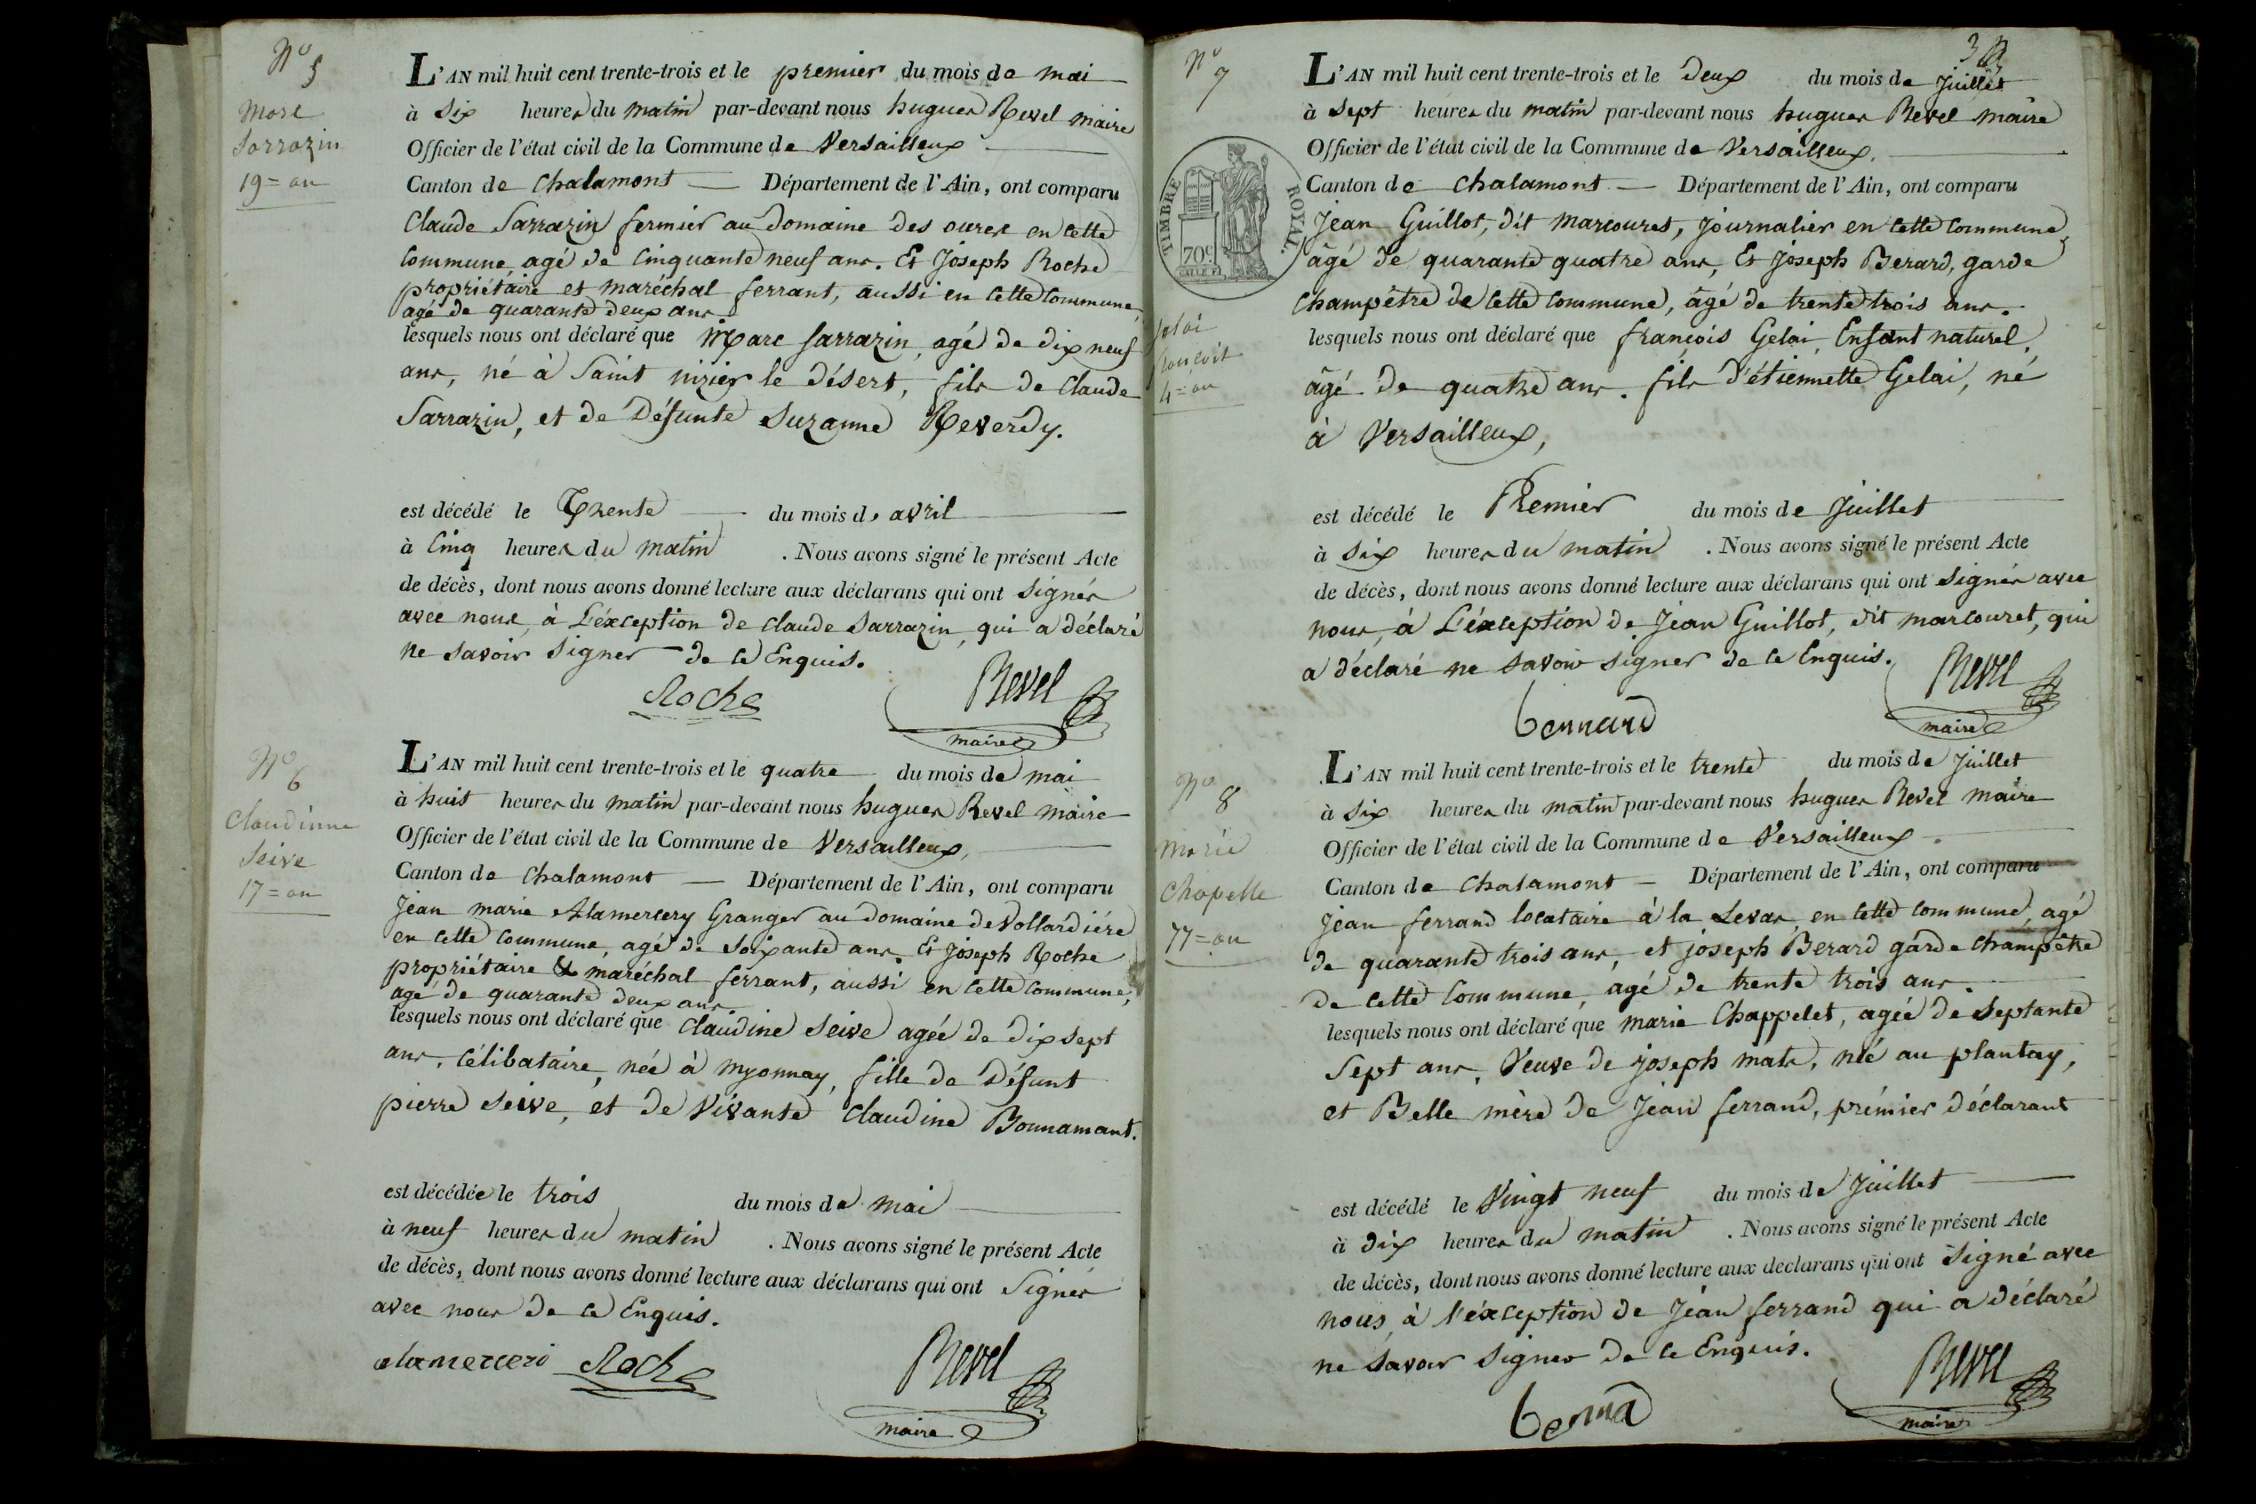 N° 5
Marc
Sarrazin
19 = an
L'AN mil huit cent trente-trois et le premier du mois de mai
à Six heures du matin par-devant nous hugues Revel maire
Officier de l'état civil de la Commune de Versailleux
Canton de Chalamont Département de l'Ain, ont comparu
Claude Sarrazin fermier au Domaine des oures en cette
Commune agé de Cinquante neuf ans. Et Joseph Roche
propriétaire et maréchal ferrant, aussi en cette commune,
agé de quarante deux ans
lesquels nous ont déclaré que Marc Sarrazin, agé de dix neuf
ans, né à Saint nizier le désert, fils de Claude
Sarrazin, et de Défunte Suzanne Reverdy.
est décédé le Trente du mois de avril
à Cinq heures du matin . Nous avons signé le présent Acte
de décès, dont nous avons donné lecture aux déclarans qui ont signés
avec nous, à L'éxception de Claude Sarrazin, qui a déclaré
ne savoir signer de ce Enquis.
Roche Revel
maire
N° 6
Claudinne
Seive
17 = an
L'AN mil huit cent trente-trois et le quatre du mois de mai
à huit heures du matin par-devant nous hugues Revel maire
Officier de l'état civil de la Commune de Versailleux,
Canton de Chalamont Département de l'Ain, ont comparu
Jean marie Alamercery Granger au Domaine de Vollardiére
en cette Commune agé de Soixante ans. Et Joseph Roche
propriétaire & maréchal ferrant, aussi en cette commune,
agé de quarante deux ans
lesquels nous ont déclaré que Claudine Seive agée de dix sept
ans, célibataire, née à myonnay, fille de Défunt
pierre Seive, et de Vivante Claudine Bonnamant.
est décédée le trois du mois de mai
à neuf heures du matin . Nous avons signé le présent Acte
de décès, dont nous avons donné lecture aux déclarans qui ont Signés
avec nous de ce Enquis.
alamerceri Roche Revel
maire
N° 7
TIMBRE ROYAL.
70c
Gelai
4 = an
L'AN mil huit cent trente-trois et le Deux du mois de Juillet
à Sept heures du matin par-devant nous hugues Revel maire
Officier de l'état civil de la Commune de Versailleux.
Canton de Chalamont Département de l'Ain, ont comparu
Jean Guillot, dit marcouret, Journalier en cette commune,
âgé de quarante quatre ans, Et Joseph Berard, garde
Champêtre de cette commune, âgé de trente trois ans.
lesquels nous ont déclaré que françois Gelai, Enfant naturel,
âgé de quatre ans. fils d'étiennette Gelai, né
à Versailleux,
est décédé le Premier du mois de Juillet
à Six heures du matin . Nous avons signé le présent Acte
de décès, dont nous avons donné lecture aux déclarans qui ont signés avec
nous, à L'éxception de Jean Guillot, dit marcouret, qui
a déclaré ne savoir signer de ce Enquis.
Revel
maire
N° 8
Marie
Chapelle
77 = an
L'AN mil huit cent trente-trois et le trente du mois de Juillet
à Six heures du matin par-devant nous hugues Revel maire
Officier de l'état civil de la Commune de Versailleux
Canton de Chalamont Département de l'Ain, ont comparu
Jean ferrand locataire à la Levas, en cette commune, agé
de quarante trois ans, et joseph Berard garde champêtre
de cette Commune, agé de trente trois ans.
lesquels nous ont déclaré que marie Chappelet, agée de Septante
Sept ans, Veuve de joseph mats, née au plantay,
et Belle mère de Jean ferrand, prémier déclarant
est décédé le Vingt neuf du mois de Juillet
à Dix heures du matin . Nous avons signé le présent Acte
de décès, dont nous avons donné lecture aux déclarans qui ont Signé avec
nous, à l'éxception de Jean ferrand qui a déclaré
ne savoir signer de ce Enquis.
Revel
maire